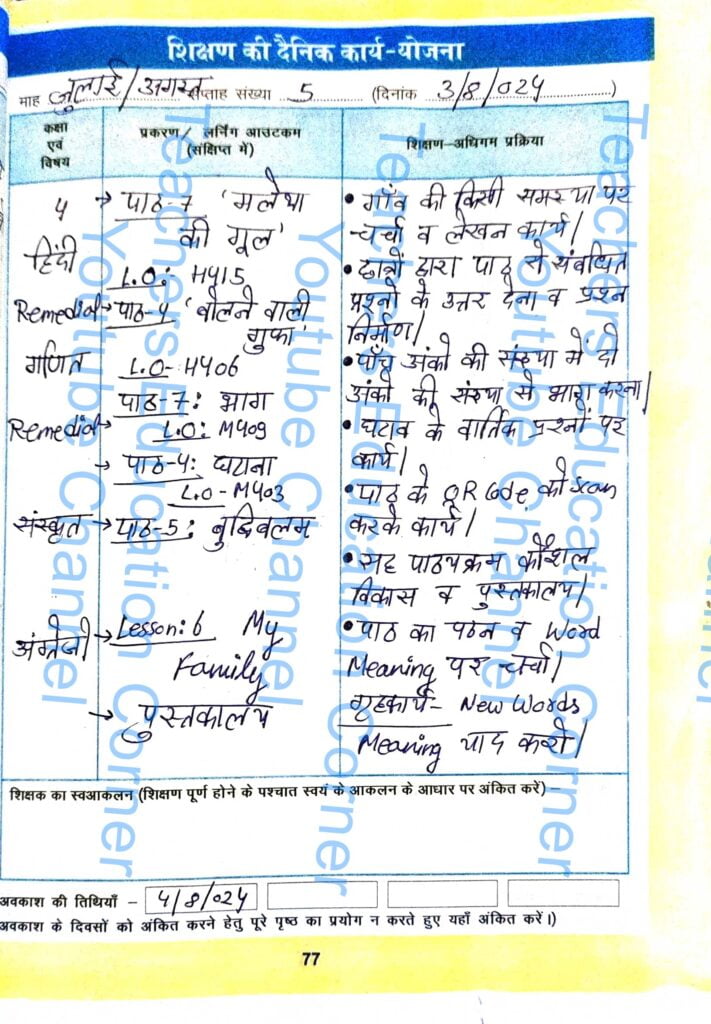 शिक्षण की दैनिक कार्य-योजना
माह जुलाई/अगस्त सप्ताह संख्या 5 (दिनांक 3/8/024)
कक्षा एवं विषय
प्रकरण / लर्निंग आउटकम (संक्षिप्त में)
शिक्षण-अधिगम प्रक्रिया
4 → पाठ-7 'मलेथा
की गूल'
हिंदी
L.O: H415
Remedial → पाठ-4 'बोलने वाली
गुफा'
L.O- H406
गणित
पाठ-7: भाग
L.O: M409
Remedial →
→ पाठ-4: घटाना
L.O- M403
संस्कृत → पाठ-5: बुद्धिबलम
अंग्रेजी → Lesson: 6 My
Family
→ पुस्तकालय
• गाँव की किसी समस्या पर
चर्चा व लेखन कार्य।
• छात्रों द्वारा पाठ से संबंधित
प्रश्नों के उत्तर देना व प्रश्न
निर्माण।
• पाँच अंको की संख्या में दो
अंको की संख्या से भाग करना।
• घटाव के वार्तिक प्रश्नों पर
कार्य।
• पाठ के QR Code को Scan
करके कार्य।
• सह पाठ्यक्रम कौशल
विकास व पुस्तकालय।
• पाठ का पठन व Word
Meaning पर चर्चा।
गृहकार्य- New Words
Meaning याद करो।
शिक्षक का स्वआकलन (शिक्षण पूर्ण होने के पश्चात स्वयं के आकलन के आधार पर अंकित करें) –
अवकाश की तिथियाँ – 4/8/024
अवकाश के दिवसों को अंकित करने हेतु पूरे पृष्ठ का प्रयोग न करते हुए यहाँ अंकित करें।)
77
Teachers Education Corner
Youtube Channel
Teachers Education Corner
Youtube Channel
Teachers Education Corner